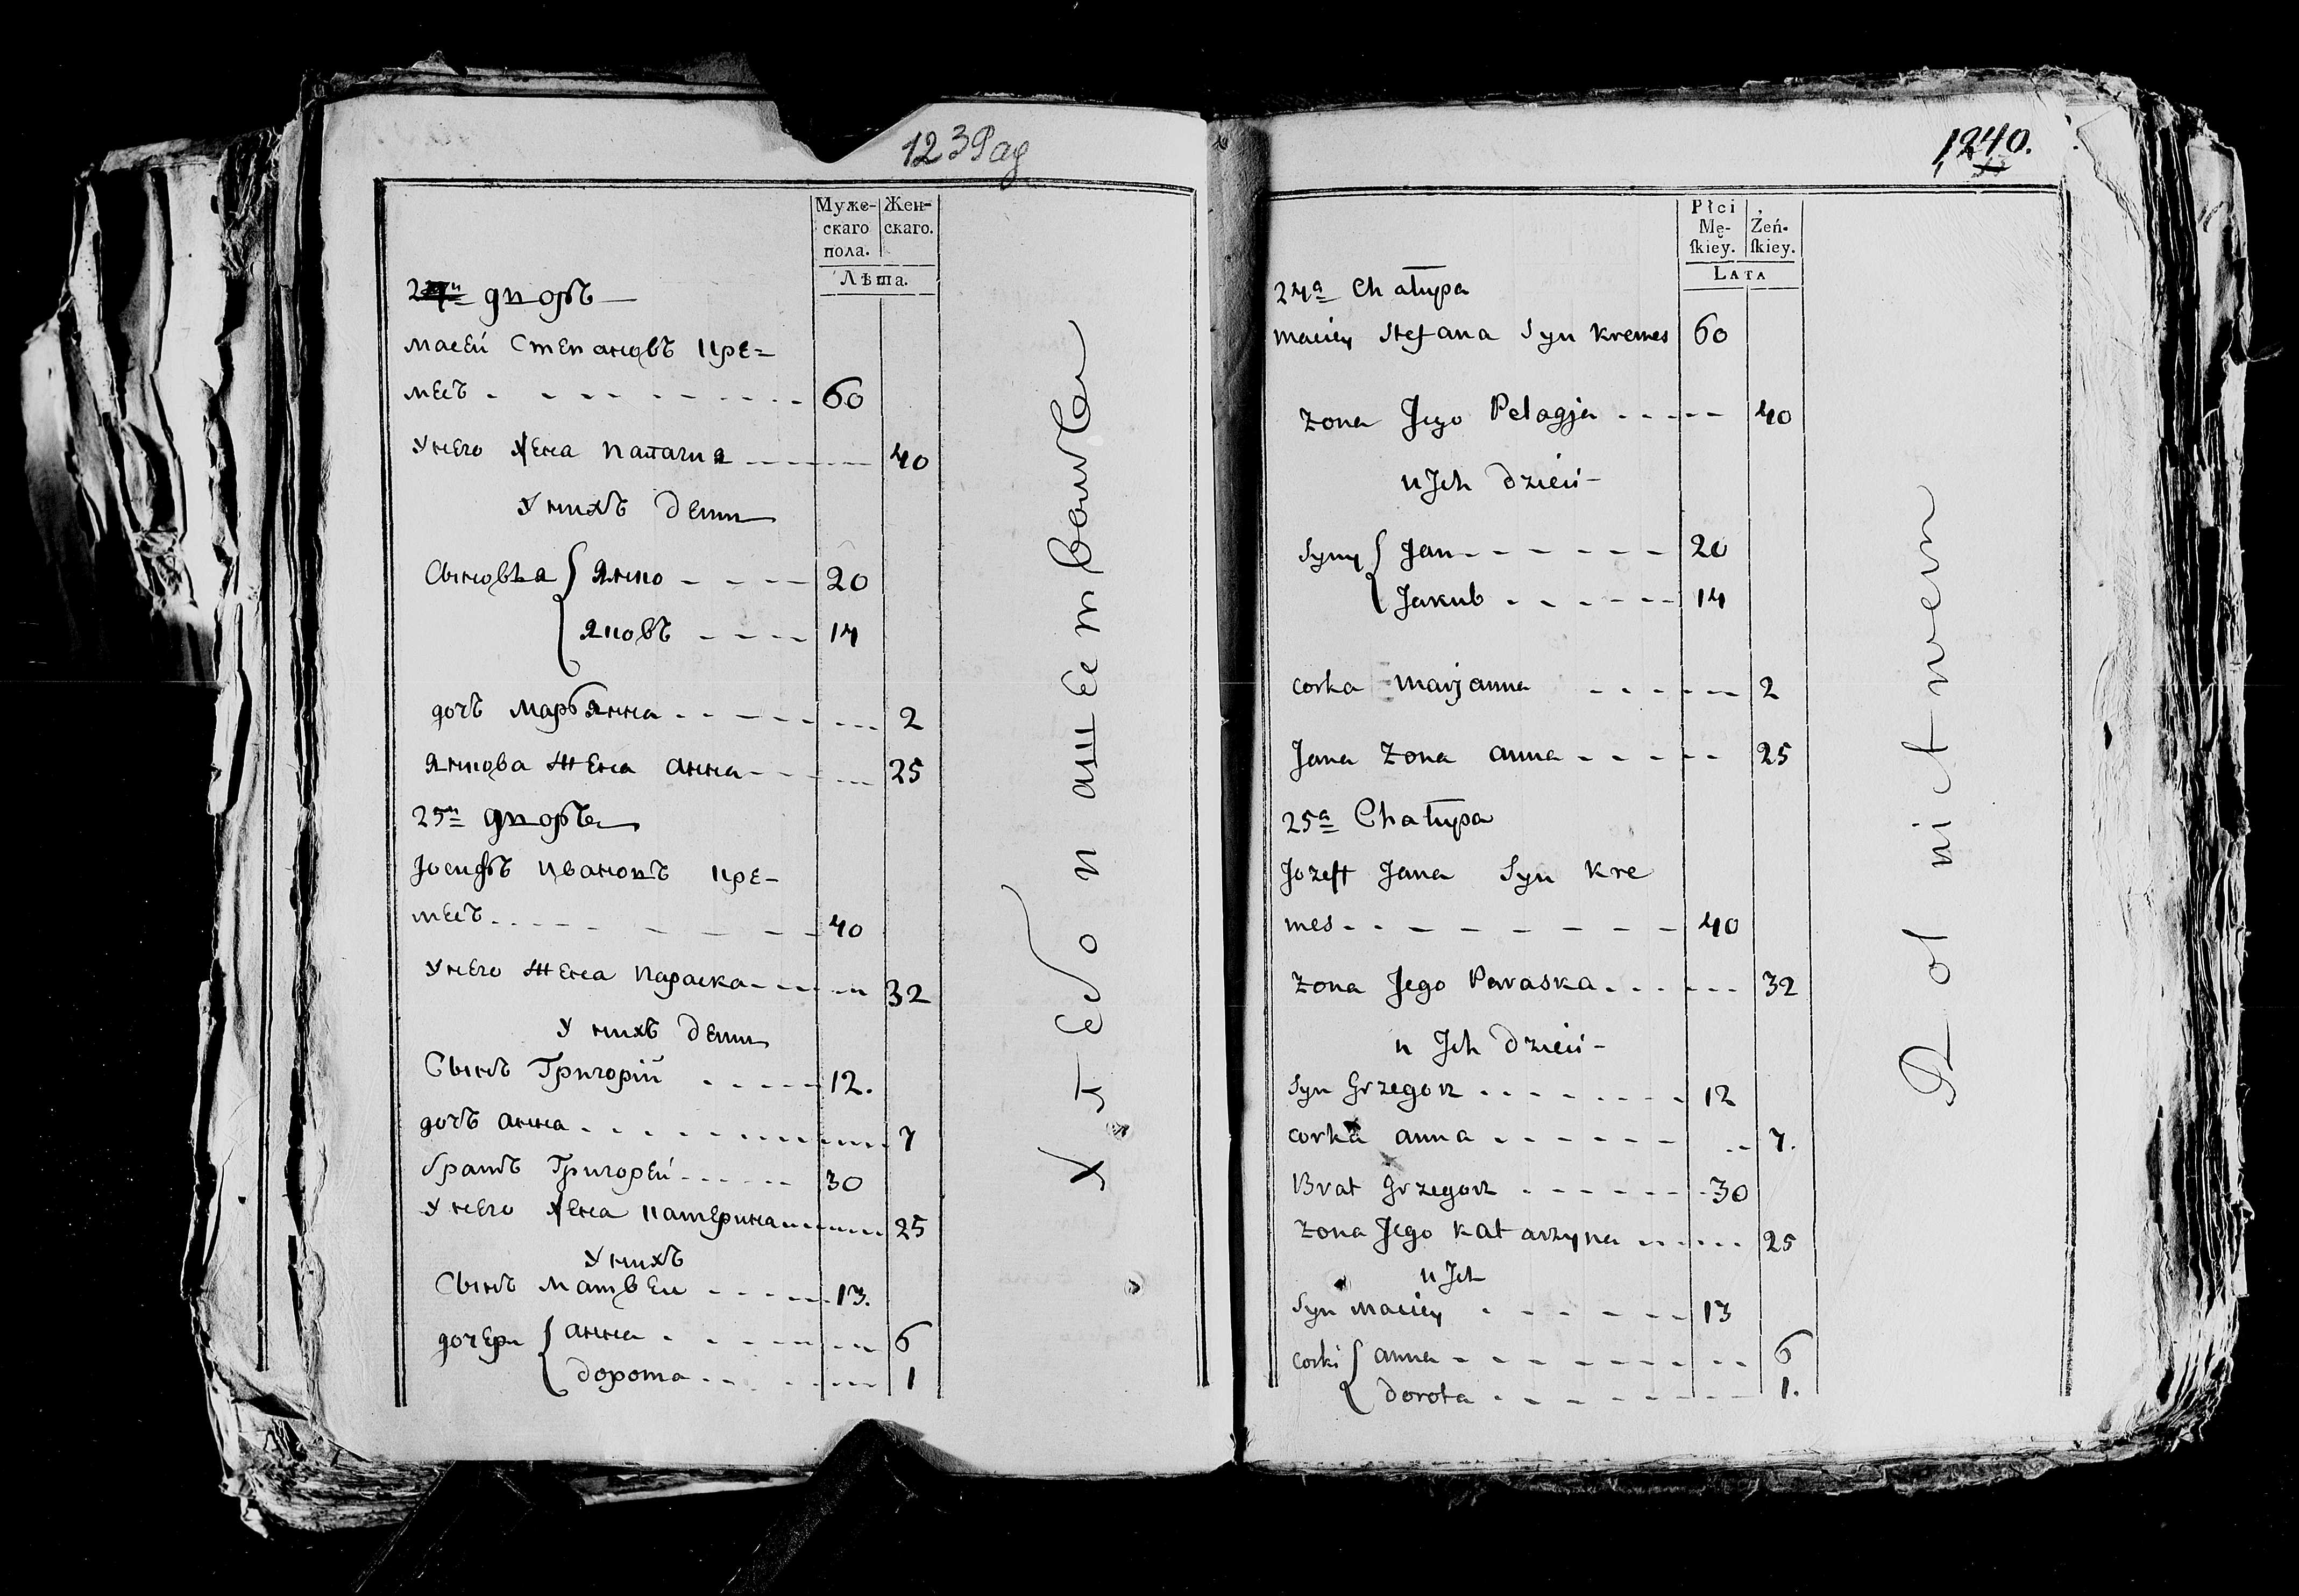 123 Pag
Муже-
скаго
пола.
Жен-
скаго.
Лѣта.
24й дворъ
масей Степановъ кре=
месъ 60
Унего жена палагия 40
Унихъ дети
Сыновья { янко 20
яковъ 14
дочъ марьянна 2
янкова жена анна 25
25й дворъ
Јосифъ ивановъ кре-
месъ 40
Унего жена параска 32
У нихъ дети
Сынъ Григорій 12.
дочъ анна 7
братъ Григорей 30
У него жена катерина 25
Унихъ
Сынъ матвеи 13.
дочери { анна 6
дорота 1
Хлебопашество
1240.
Płci
Mę-
ſkiey.
Żeń-
ſkiey.
LATA
24a Chałupa
maciey Stefana Syn kremes 60
żona Jego Pelagja 40
u Jch dzieci
Syny { Jan 20
Jakub 14
corka marjanna 2
Jana żona anna 25
25a Chałupa
Jozeff Jana Syn kre
mes 40
żona Jego Paraska 32
u Jch dzieci
Syn Grzegorz 12
corka anna 7.
Brat Grzegorz 30
żona Jego katarzyna 25
u Jch
Syn maciey 13
corki { anna 6
dorota 1.
Rolnictwem